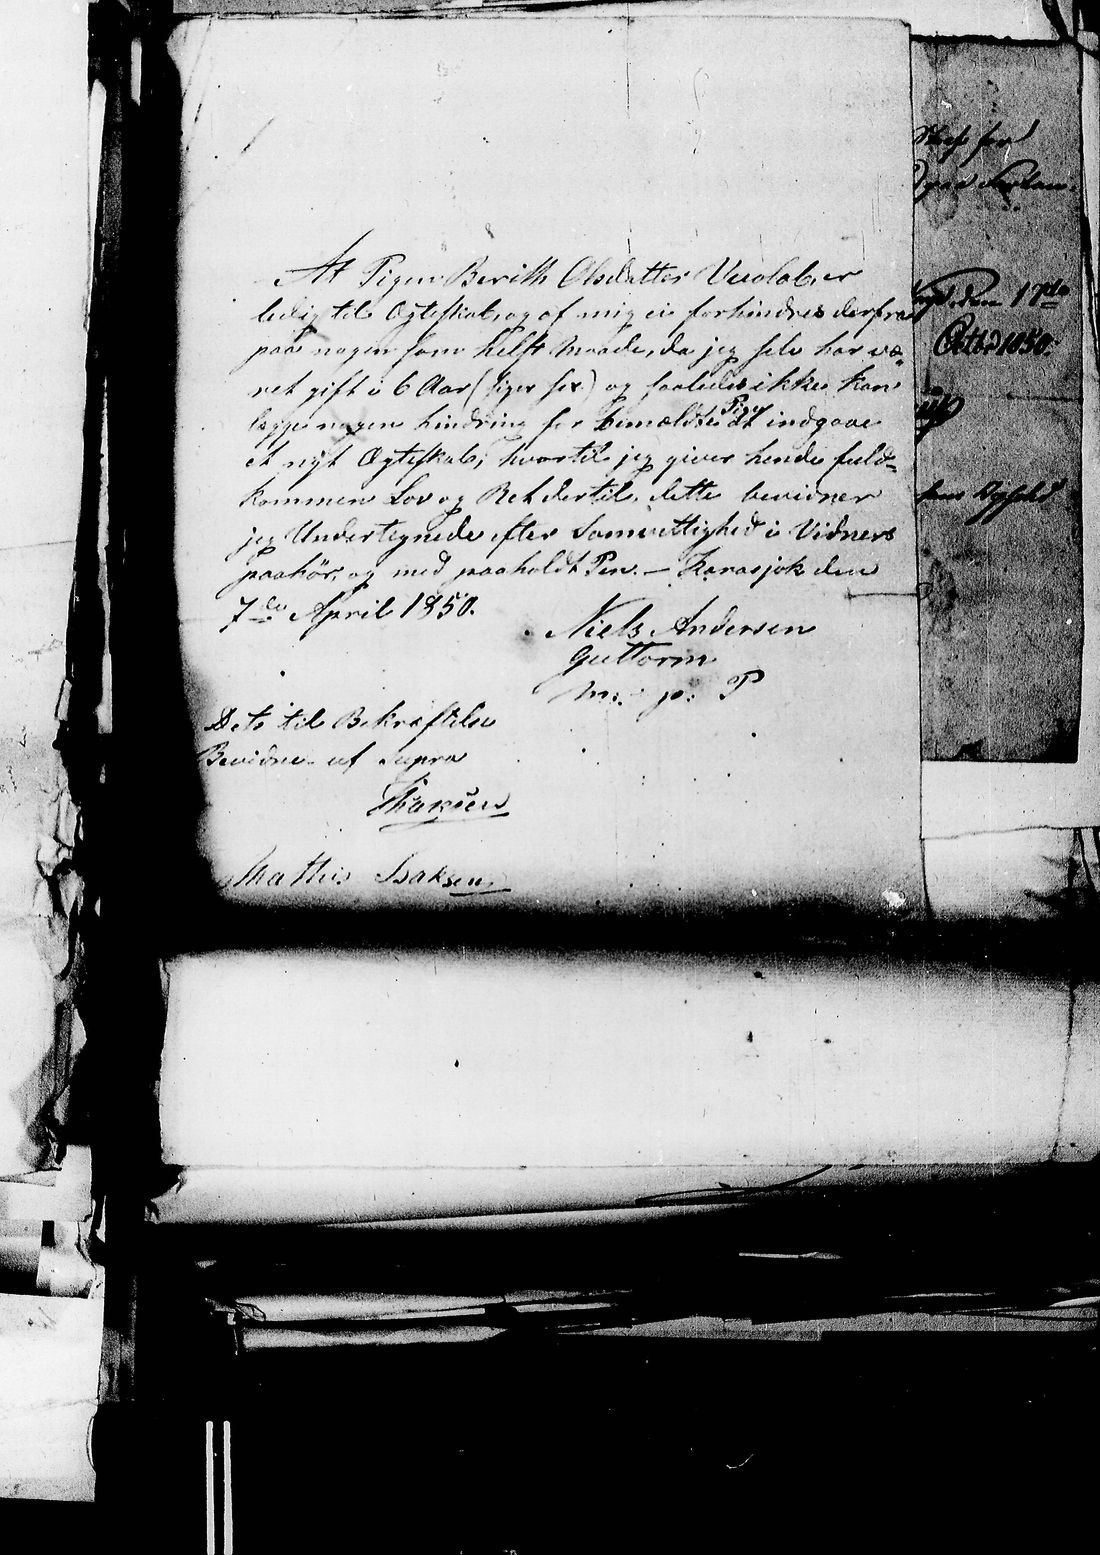 At Pigen Berith Olsdatter Vuolab, er
ledig til Ægteskab, og af mig ei forhindres derfra
paa nogen som helst Maade, da jeg selv har væ-
ret gift i 6 Aar (siger sex) og saaledes ikke kan
legge nogen hindring for bemældte Pige at indgaae
et nyt Ægteskab; hvortil jeg giver hende fuld-
kommen Lov og Ret dertil, dette bevidner
jeg Undertegnede efter Samvittighed i Vidners
paahør, og med paaholdt Pen. — Karasjok den
7de April 1850.
Niels Andersen
Guttorm
m. p. P
Dets til Bekræftelse
Bevidne af Supra
Mathis Isaksen
den 17de
1850.